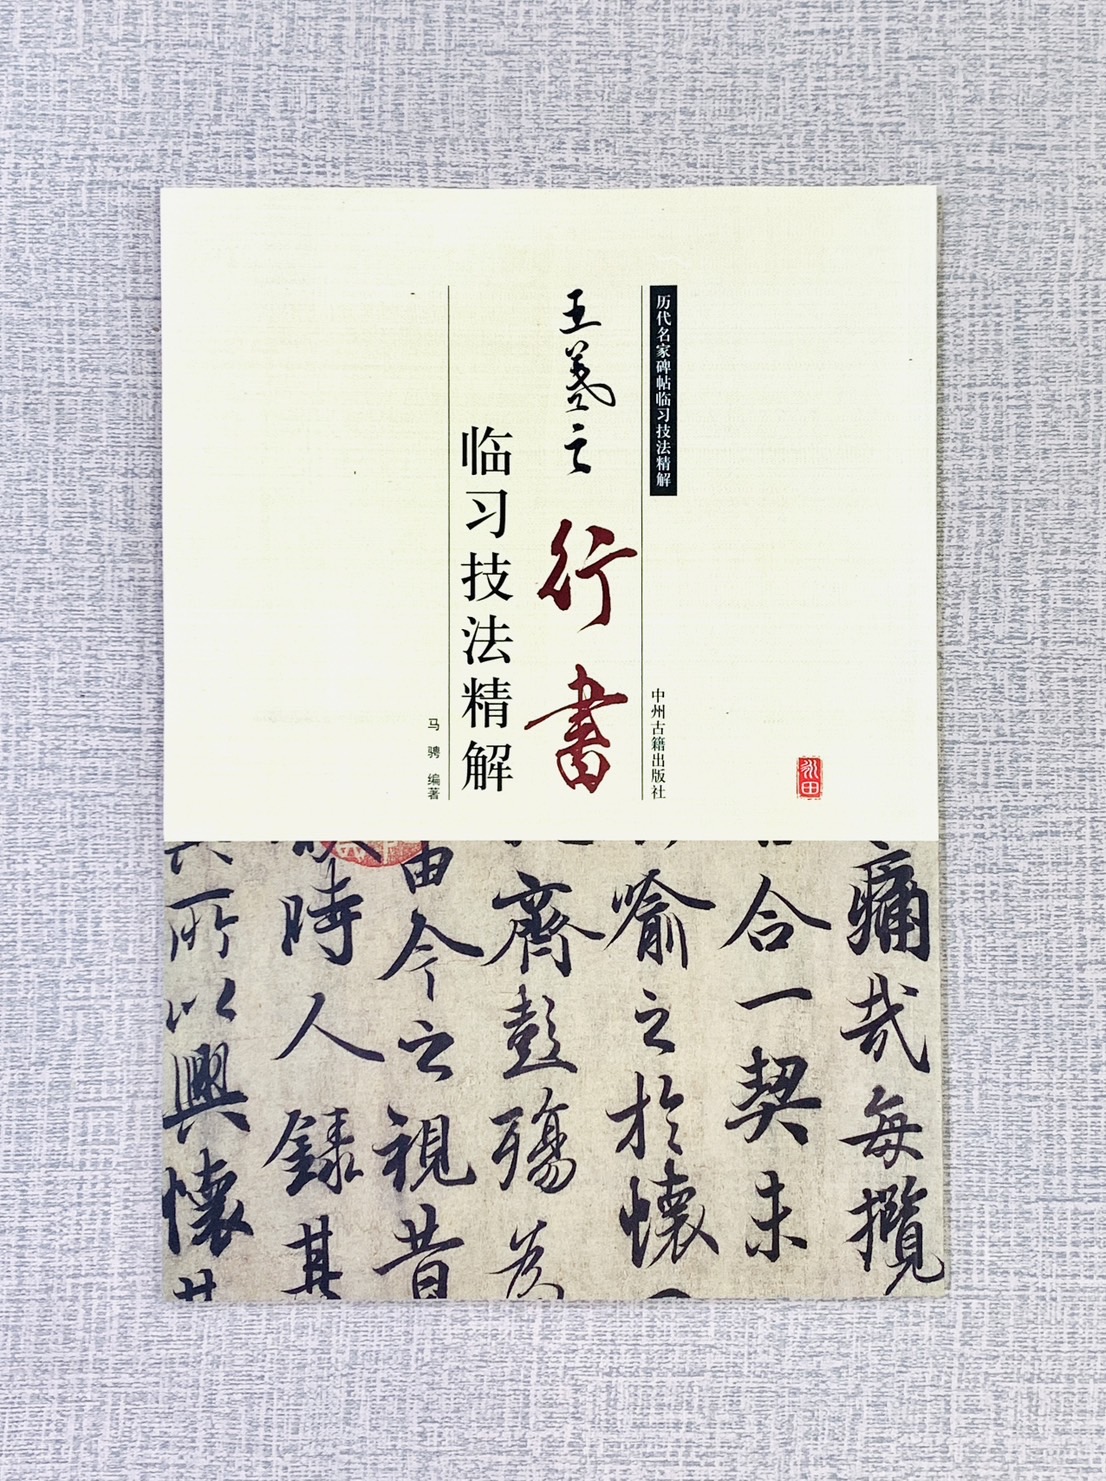 历代名家碑帖临习技法精解
中州古籍出版社
王羲之
行書
临习技法精解
马骋 编著
永田
痛哉每攬
合一契未
喻之於懷
齊彭殤為
由今之視昔
時人錄其
所以興懷其